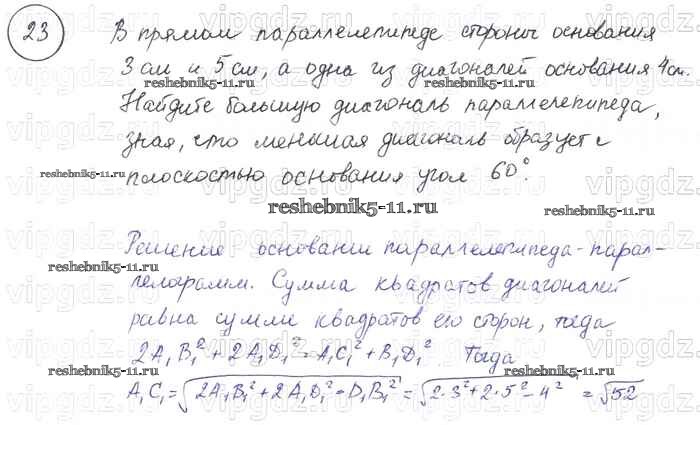 23
В прямом параллелепипеде стороны основания
3 см и 5 см, а одна из диагоналей основания 4 см.
Найдите большую диагональ параллелепипеда,
зная, что меньшая диагональ образует с
плоскостью основания угол 60°.
reshebnik5-11.ru
Решение основании параллелепипеда - парал-
лелограмм. Сумма квадратов диагоналей
равна сумме квадратов его сторон, тогда
2A₁B₁² + 2A₁D₁² = A₁C₁² + B₁D₁². Тогда
A₁C₁ = √(2A₁B₁² + 2A₁D₁² - D₁B₁²) = √(2·3² + 2·5² - 4²) = √52